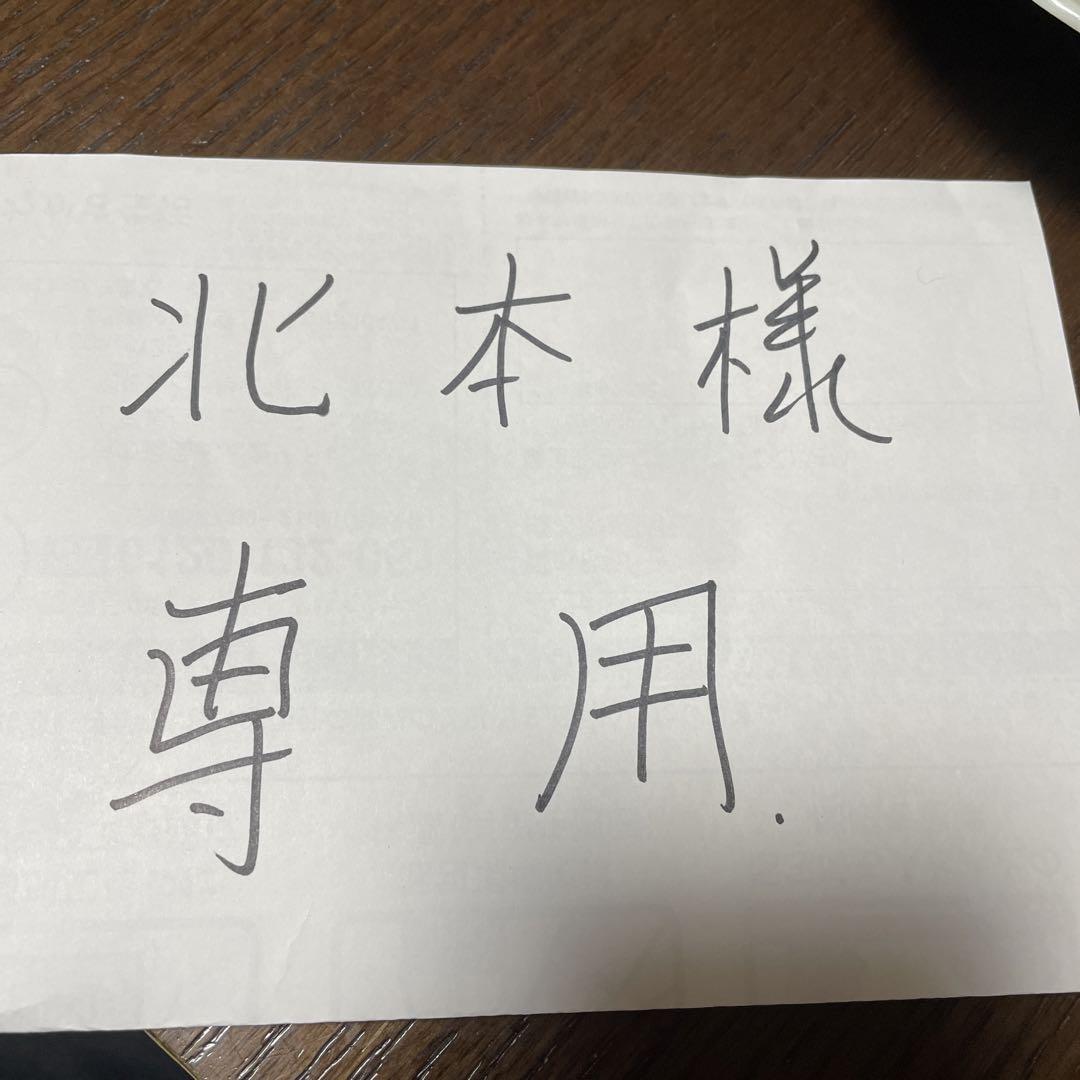 北本様
専用.